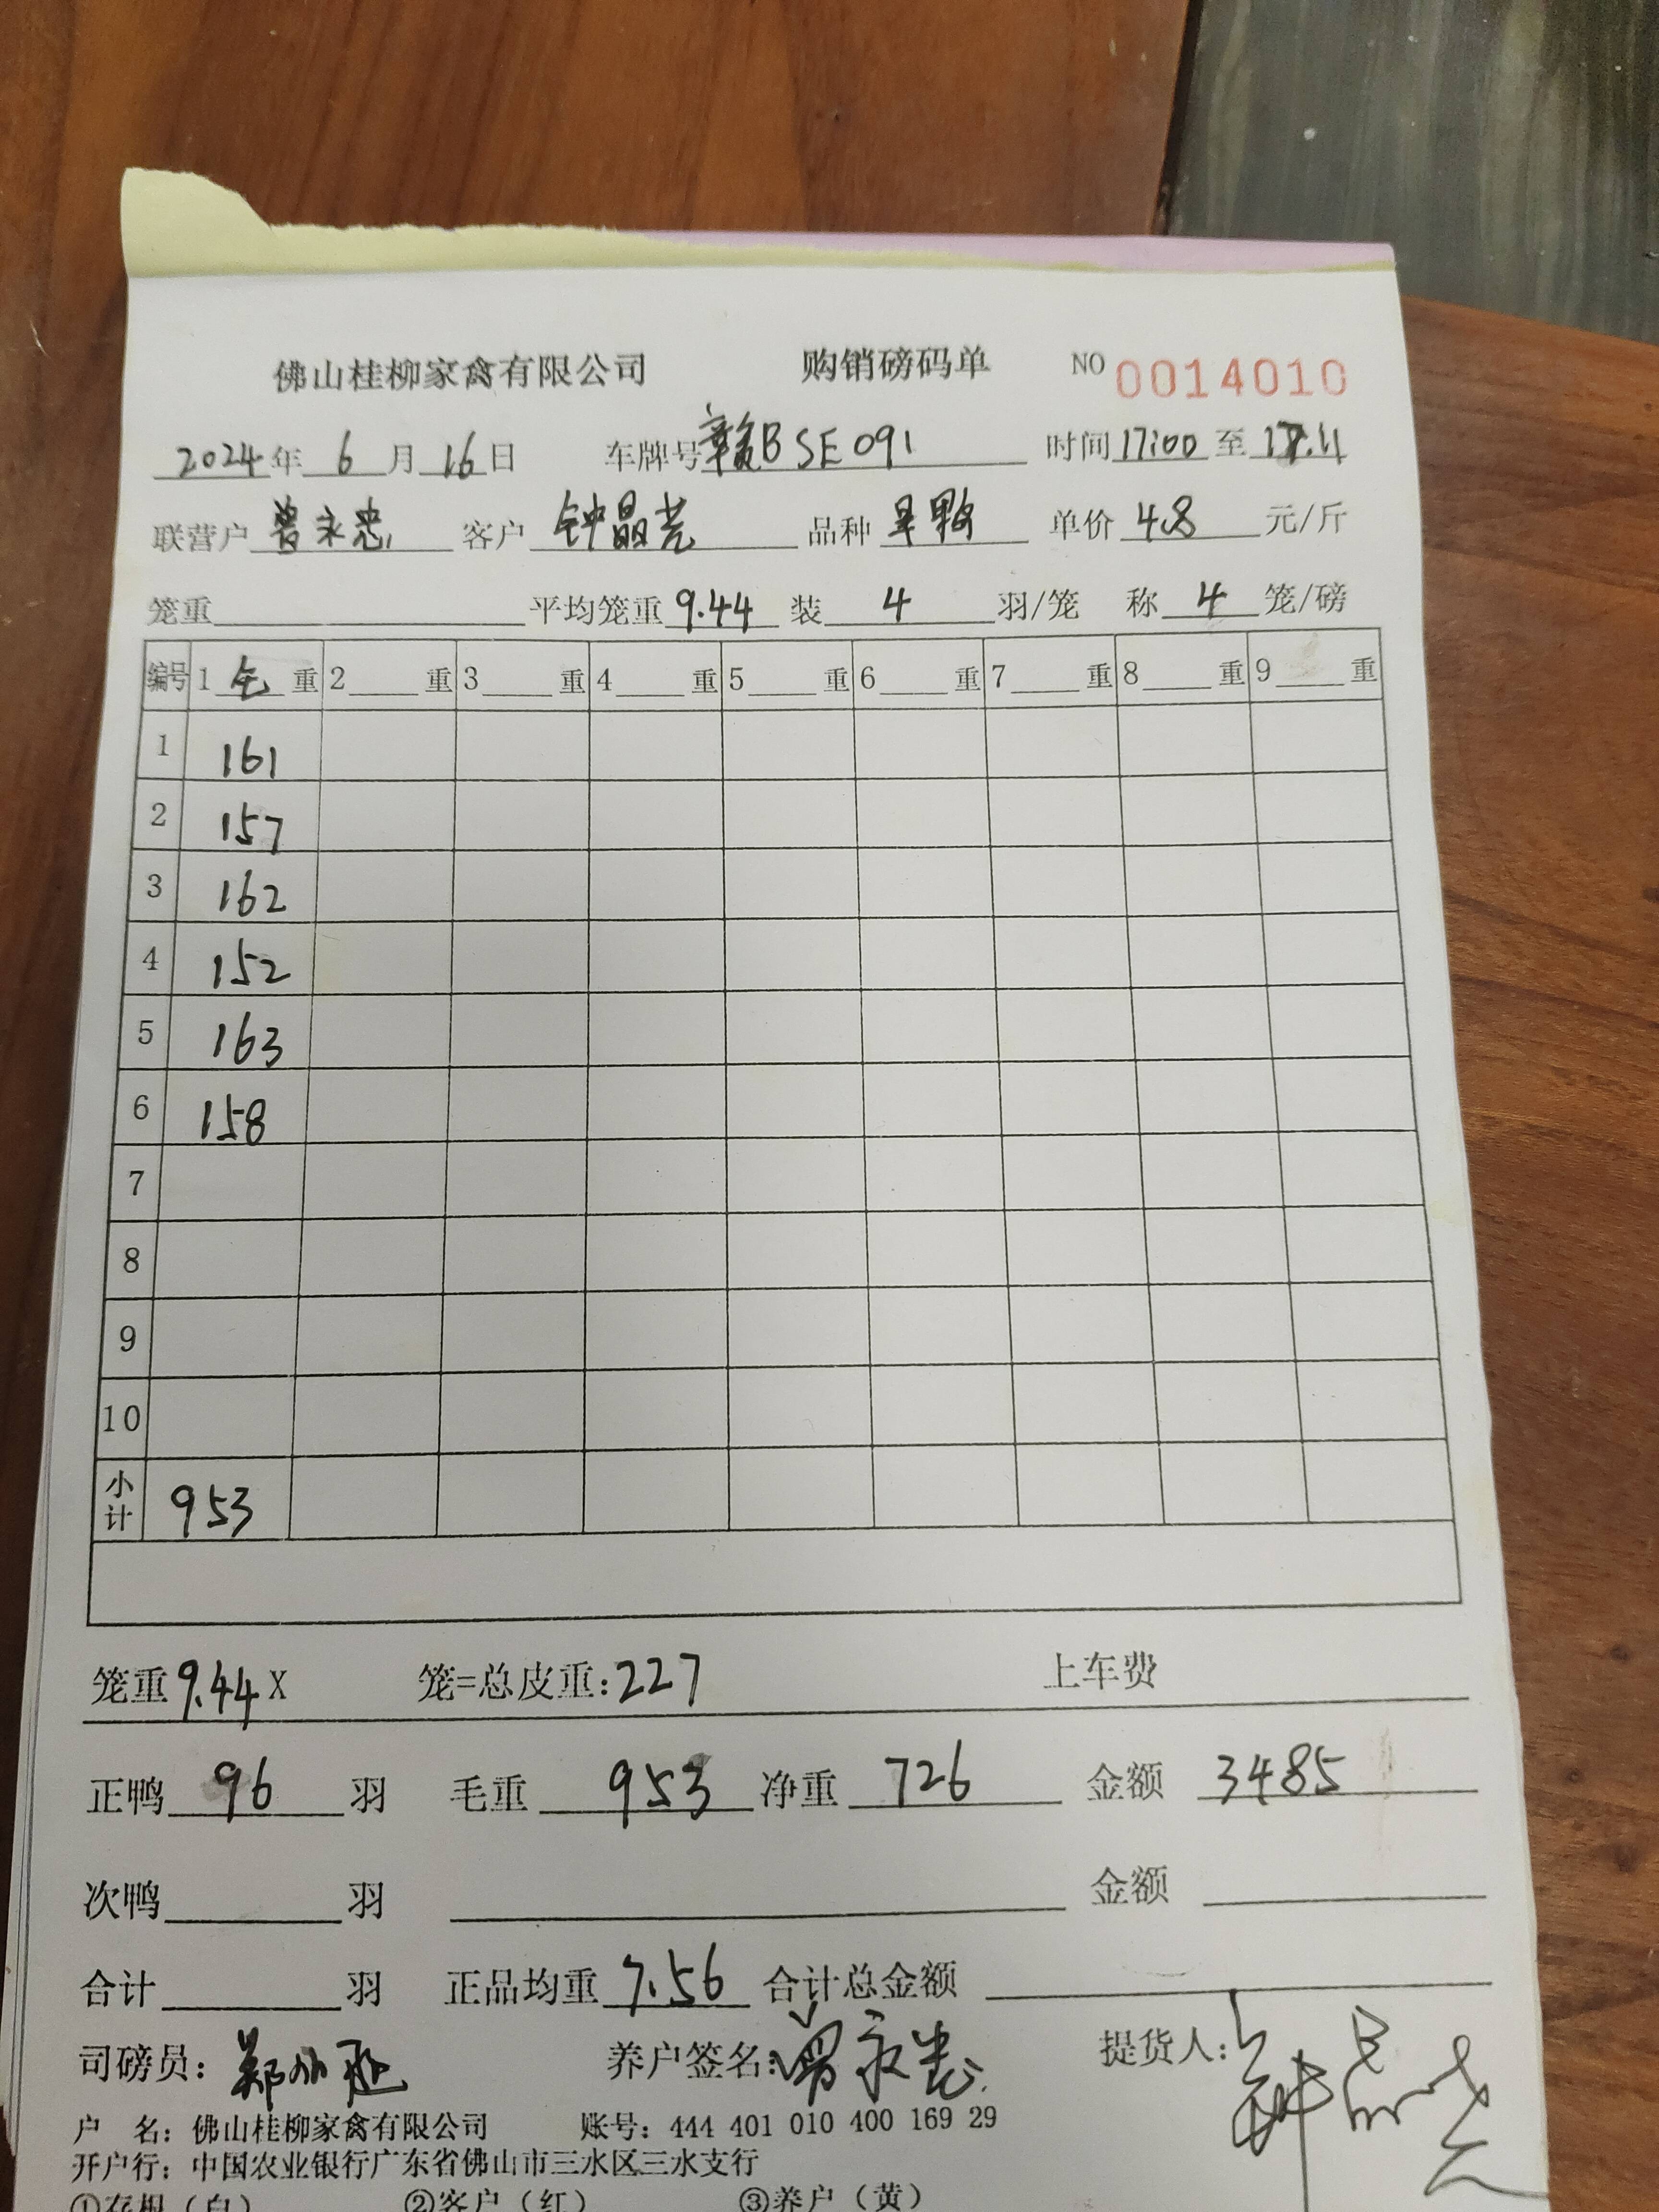 佛山桂柳家禽有限公司 购销磅码单 NO 0014010
2024年 6月 16日 车牌号 赣B SE091 时间 17:00 至 17.11
联营户 曾永忠 客户 钟晶芳 品种 单价 4.8 元/斤
笼重 平均笼重 9.44 装 4 羽/笼 称 4 笼/磅
编号 1 毛 重 2 重 3 重 4 重 5 重 6 重 7 重 8 重 9 重
1 161
2 157
3 162
4 152
5 163
6 158
7
8
9
10
小计 953
笼重 9.44 X 笼=总皮重: 227 上车费
正鸭 96 羽 毛重 953 净重 726 金额 3485
次鸭 羽 金额
合计 羽 正品均重 7.56 合计总金额
司磅员: 养户签名: 曾永忠 提货人:
户 名: 佛山桂柳家禽有限公司 账号: 444 401 010 400 169 29
开户行: 中国农业银行广东省佛山市三水区三水支行
①存根（白） ②客户（红） ③养户（黄）